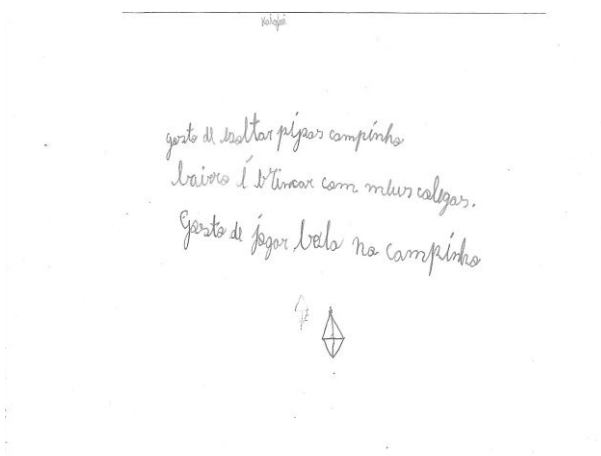 gosto de ssoltar pipas campinho
bairro é brincar com meus colegas.
Gosto de jogar bola no campinho